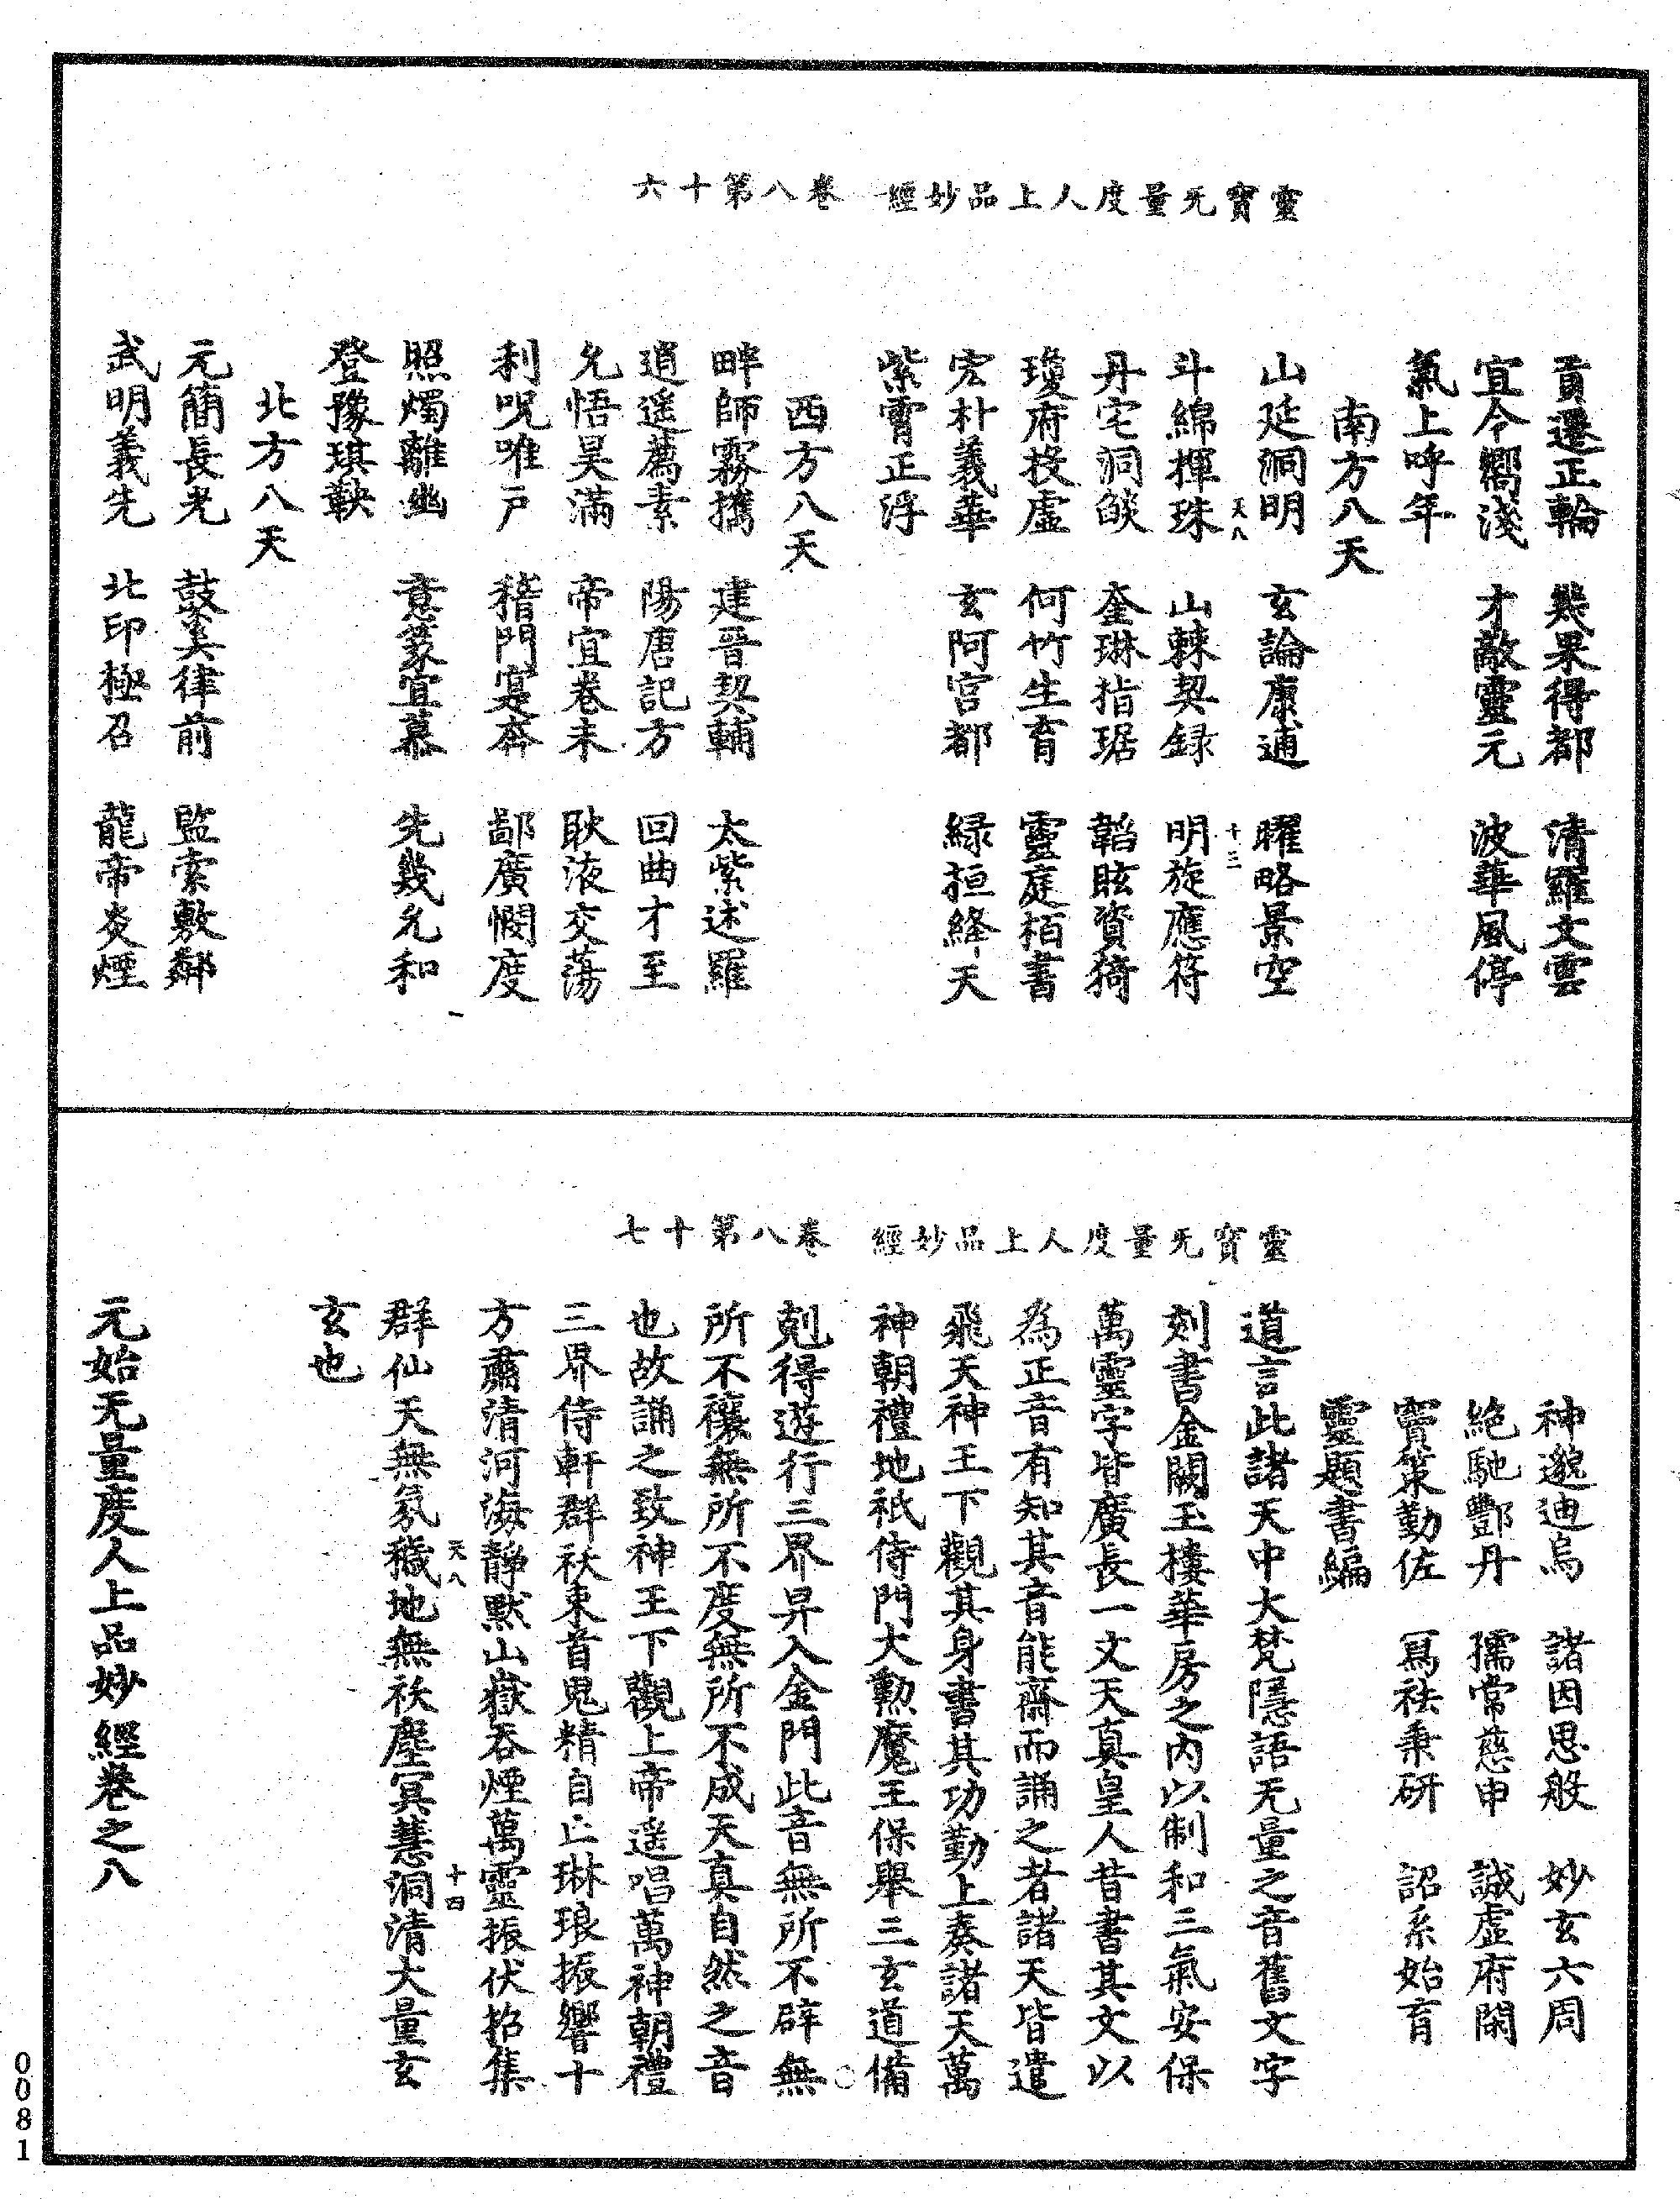 靈寶无量度人上品妙經　卷八第十六
貢遷正輪　龑果得都　清羅文雲
宜今嚮淺　才敵靈元　波華風停
氣上呼年
南方八天
山延洞明　玄論康逋　曜略景空
天八　十三
斗綿揮珠　山棘契録　明旋應符
丹宅洞燄　奎琳指琚　韜眩資猗
瓊府投虛　何竹生育　靈庭栢書
宏朴義華　玄阿宮都　緑桓絳天
紫霄正浮
西方八天
畔師霧攜　建晉契輔　太紫述羅
逍遥薦素　陽唐記方　回曲才至
允悟昊滿　帝宜卷未　耿液交蕩
利呪唯戸　稽門寔奔　鄗廣憫度
照燭離幽　意篆宜慕　先幾允和
登豫琪鞅
北方八天
元簡長光　鼓奚律前　監索敷鄰
武明義先　北印極召　龍帝炎煙
靈寶无量度人上品妙經　卷八第十七
神邈迪烏　諸因思般　妙玄六周
絶馳酆丹　孺常慈申　誠虛府閑
寶策勤佐　冩袪秉研　詔系始育
靈題書編
道言此諸天中大梵隱語无量之音舊文字
刻書金闕玉樓華房之内以制和三氣安保
萬靈字皆廣長一丈天真皇人昔書其文以
為正音有知其音能齋而誦之者諸天皆遣
飛天神王下觀其身書其功勤上奏諸天萬
神朝禮地祇侍門大勲魔王保舉三玄道備
剋得遊行三界昇入金門此音無所不辟無
所不禳無所不度無所不成天真自然之音
也故誦之致神王下觀上帝遥唱萬神朝禮
三界侍軒群祅束首鬼精自止琳琅振響十
方肅清河海靜默山嶽吞煙萬靈振伏招集
天八　十四
群仙天無氛穢地無祅塵冥慧洞清大量玄
玄也
元始无量度人上品妙經卷之八
0081